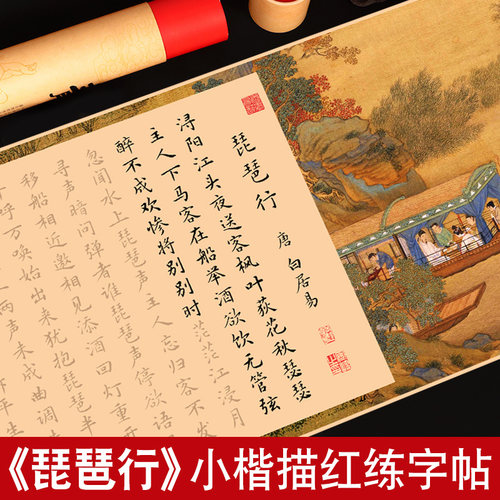 琵琶行
唐 白居易
浔阳江头夜送客枫叶荻花秋瑟瑟
主人下马客在船举酒欲饮无管弦
醉不成欢惨将别别时茫茫江浸月
忽闻水上琵琶声主人忘归客不发
寻声暗问弹者谁琵琶声停欲语
移船相近邀相见添酒回灯重开
呼万唤始出来犹抱琵琶半
两声未成曲调
《琵琶行》小楷描红练字帖